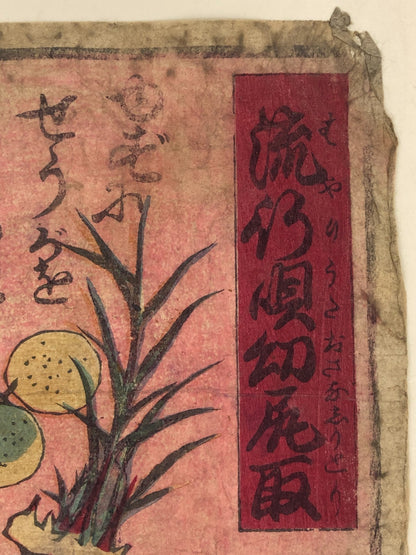 流行唄幼尻取
はやりうたおさなしりとり
ゆずに
せうがを